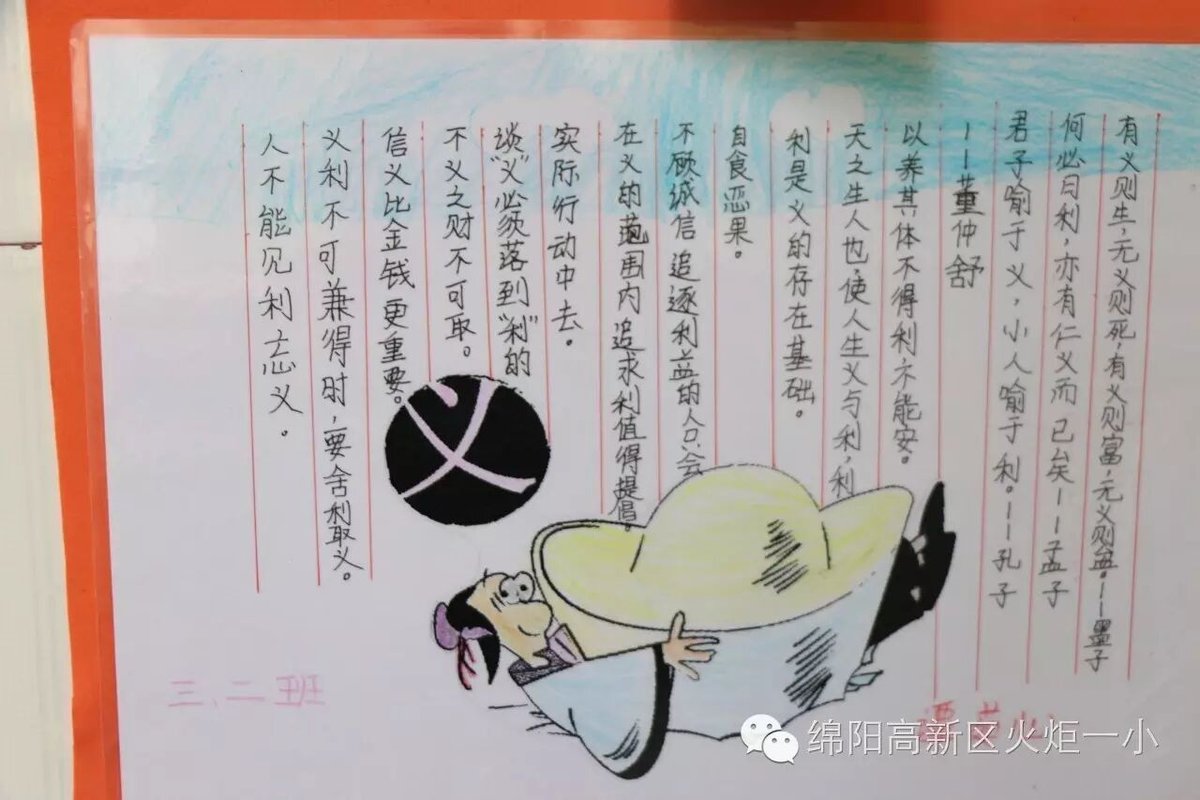 有义则生,无义则死,有义则富,无义则盆。——墨子
何必曰利,亦有仁义而已矣——孟子
君子喻于义,小人喻于利。——孔子
——董仲舒
以养其体不得利不能安。
天之生人也,使人生义与利,利
利是义的存在基础。
自食恶果。
不顾诚信追逐利益的人只会
在义的范围内追求利值得提倡。
实际行动中去。
谈"义"必须落到"利"的
不义之财不可取。
信义比金钱更重要。
义利不可兼得时,要舍利取义。
人不能见利忘义.
义
三、二班
绵阳高新区火炬一小